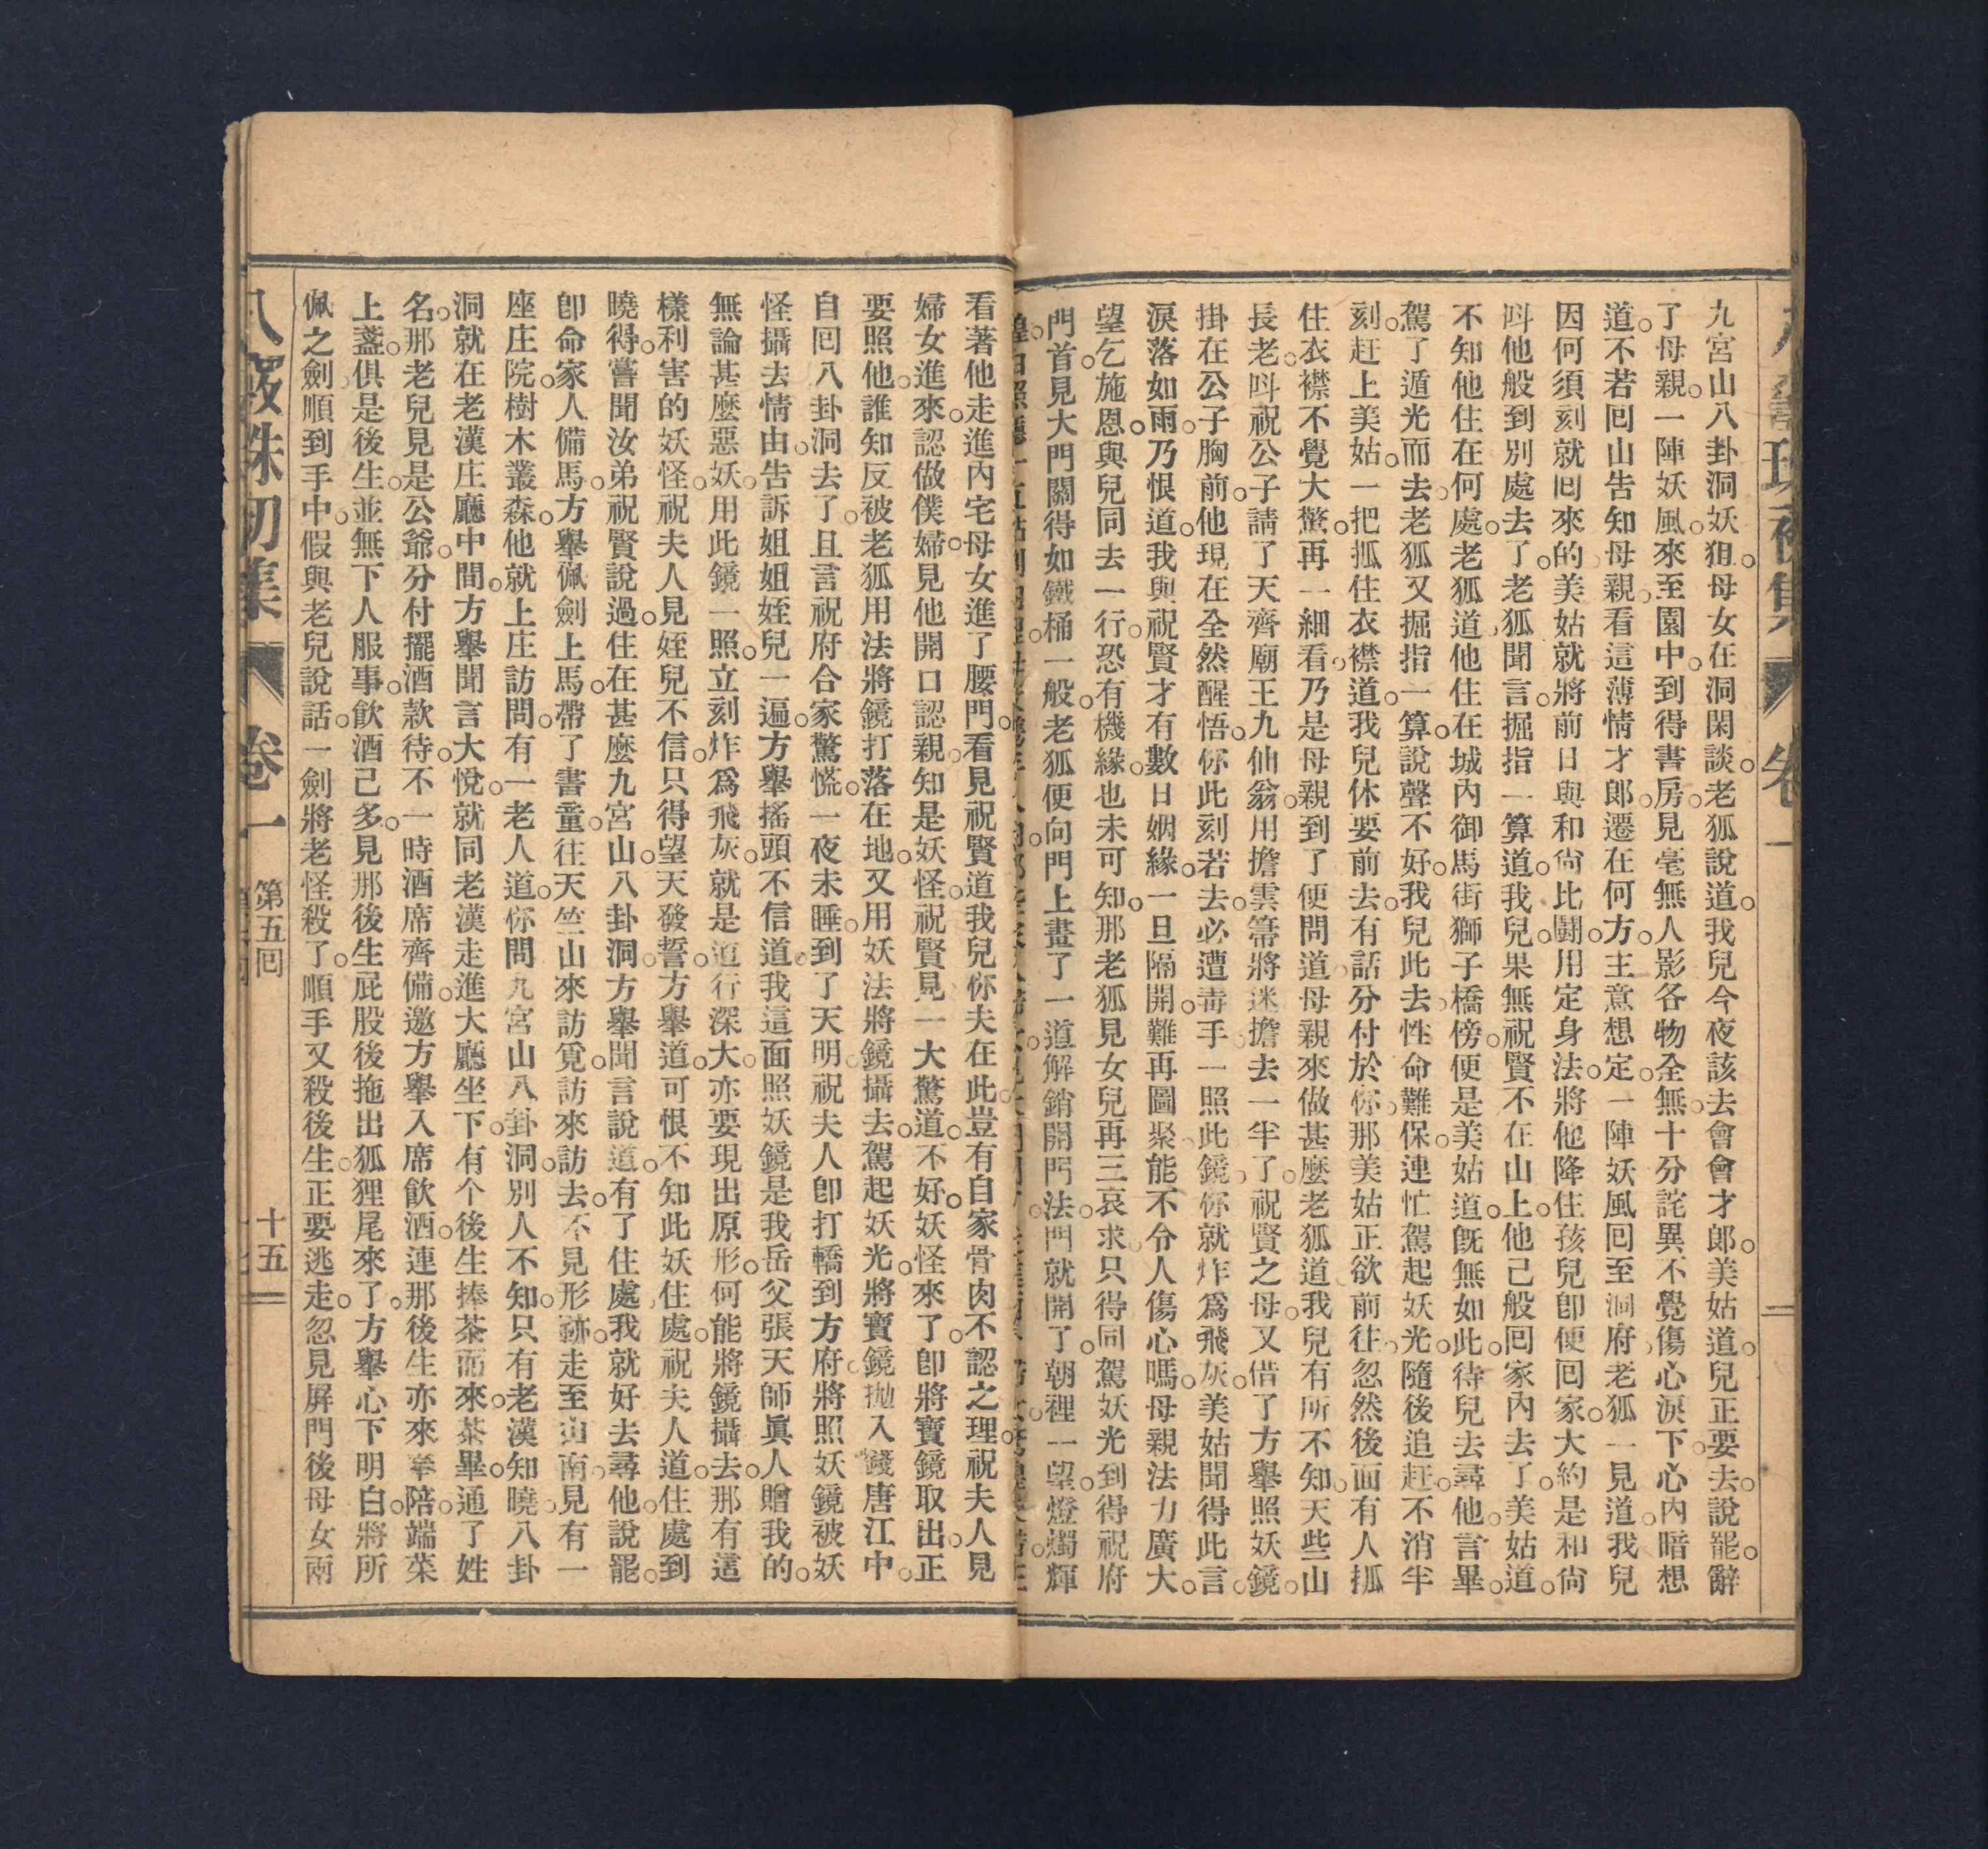 九宮山八卦洞妖狙母女在洞閑談。老狐說道。我兒今夜該去會會才郎。美姑道。兒正要去。說罷。辭
了母親。一陣妖風。來至園中。到得書房。見毫無人影。各物全無。十分詫異。不覺傷心淚下。心內暗想
道。不若回山告知母親。看這薄情才郎。遷在何方。主意想定。一陣妖風回至洞府。老狐一見道。我兒
因何須刻就回來的。美姑就將前日與和尙比鬪。用定身法。將他降住。孩兒卽便回家。大約是和尙
呌他般到別處去了。老狐聞言。掘指一算道。我兒。果無祝賢不在山上。他己般回家內去了。美姑道。
不知他住在何處。老狐道。他住在城內御馬街獅子橋傍。便是。美姑道。旣無如此。待兒去尋他。言畢。
駕了遁光而去。老狐又掘指一算。說聲不好。我兒此去。性命難保。連忙駕起妖光。隨後追赶。不消半
刻。赶上美姑。一把抓住衣襟。道。我兒休要前去。有話分付於你。那美姑正欲前往。忽然後面有人抓
住衣襟。不覺大驚。再一細看。乃是母親到了。便問道。母親來做甚麼。老狐道。我兒有所不知。天些山
長老。呌祝公子請了天齊廟王九仙翁。用擔雲箒將迷擔去一半了。祝賢之母。又借了方舉照妖鏡。
掛在公子胸前。他現在全然醒悟。你此刻若去。必遭毒手。一照此鏡。你就炸爲飛灰。美姑聞得此言。
淚落如雨。乃恨道。我與祝賢才有數日姻緣。一旦隔開。難再圖聚。能不令人傷心嗎。母親法力廣大。
望乞施恩。與兒同去一行。恐有機緣。也未可知。那老狐見女兒再三哀求。只得同駕妖光。到得祝府
門首。見大門關得如鐵桶一般。老狐便向門上畫了一道解銷開門法。門就開了。朝裡一望。燈燭輝
看著他走進內宅。母女進了腰門。看見祝賢道。我兒你夫在此。豈有自家骨肉。不認之理。祝夫人見
婦女進來。認做僕婦。見他開口認親。知是妖怪。祝賢見一大驚道。不好。妖怪來了。卽將寶鏡取出。正
要照他。誰知反被老狐用法將鏡打落在地。又用妖法將鏡攝去。駕起妖光。將寶鏡拋入錢唐江中。
自回八卦洞去了。且言祝府合家驚慌。一夜未睡。到了天明。祝夫人卽打轎到方府。將照妖鏡被妖
怪攝去情由。告訴姐姐姪兒一遍。方舉搖頭不信道。我這面照妖鏡。是我岳父張天師眞人贈我的。
無論甚麼惡妖。用此鏡一照。立刻炸爲飛灰。就是道行深大。亦要現出原形。何能將鏡攝去。那有這
樣利害的妖怪。祝夫人見姪兒不信。只得望天發誓。方舉道。可恨不知此妖住處。祝夫人道。住處到
曉得。嘗聞汝弟祝賢說過。住在甚麼九宮山。八卦洞。方舉聞言說道。有了住處。我就好去尋他。說罷。
卽命家人備馬。方舉佩劍上馬。帶了書童。往天竺山來訪覓。訪來訪去。不見形跡。走至山南。見有一
座庄院。樹木叢森。他就上庄訪問。有一老人道。你問九宮山八卦洞。別人不知。只有老漢知曉。八卦
洞就在老漢庄廳中間。方舉聞言大悅。就同老漢走進大廳坐下。有个後生捧茶而來。茶畢。通了姓
名。那老兒見是公爺。分付擺酒款待。不一時。酒席齊備。邀方舉入席飲酒。連那後生亦來奉陪。端菜
上盞。俱是後生。並無下人服事。飲酒己多。見那後生屁股後拖出狐狸尾來了。方舉心下明白。將所
佩之劍順到手中。假與老兒說話。一劍將老怪殺了。順手又殺後生。正要逃走。忽見屏門後母女兩
卷一 第五回 十五